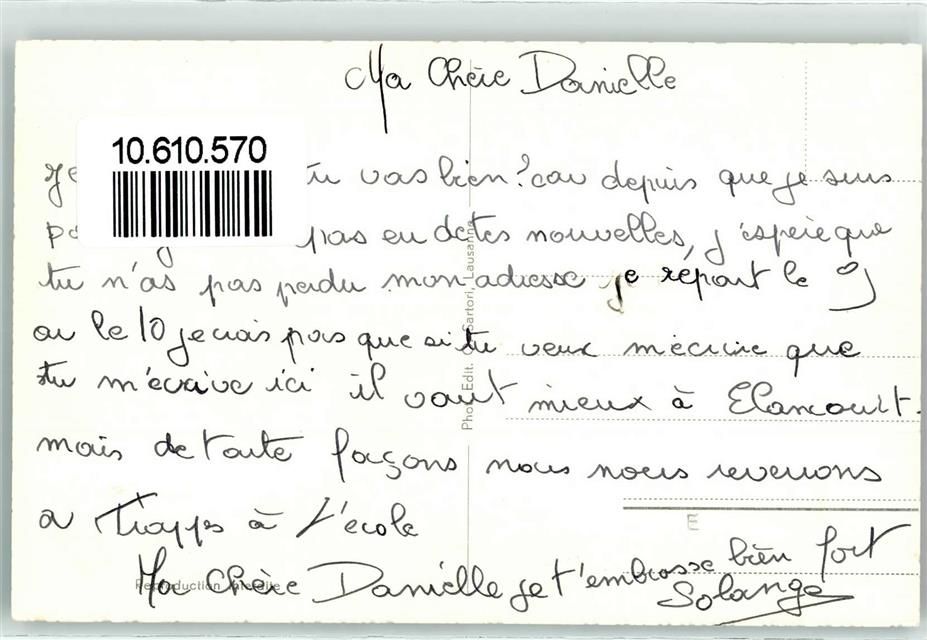 Ma Chère Danielle
10.610.570
Je tu vas bien? car depuis que je suis
pas eu de tes nouvelles, j'espère que
tu n'as pas perdu mon adresse je repart le 9
ou le 10 je crois pas que si tu veux m'écrire que
tu m'écrive ici il vaut mieux à Elancourt.
mais de toute façons nous nous reverrons
a Trappes à l'école
Ma Chère Danielle je t'embrasse bien fort
Solange
Photo Edit. Sartori, Lausanne
Reproduction interdite
E